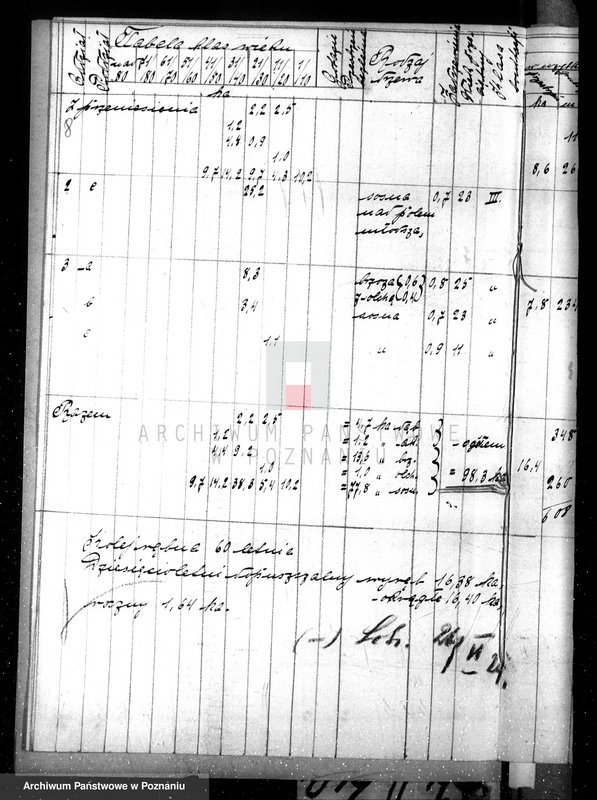 Oddział Poddział Tabela klas wieku Rodzaj Klasa
nad 80 71 80 61 70 51 60 41 50 31 40 21 30 11 20 1 10
drzewa
ha ha m
Z przeniesienia 2,2 2,5
8
1,2 11
4,4 0,9
1,0
9,7 14,2 9,7 4,3 10,2 8,6 26
2 c 25,2 sosna 0,7 23 III.
nad polem
młodsza,
3 a 8,3 brzoza (0,6) 0,8 25 "
z olchą (0,4) 7,8 234
b 3,4 sosna 0,7 23 "
c 1,1 " 0,9 11 "
Razem 2,2 2,5 = 4,7 ha 348
1,2 = 1,2 " - ogółem
4,4 9,2 = 13,6 " brz.
1,0 = 1,0 " olch. = 98,3 ha 16,4
9,7 14,2 38,3 5,4 10,2 = 77,8 " sosn. 260
608
ARCHIWUM PAŃSTWOWE
W POZNANIU
Kolej rębna 60 letnia
Dziesięcioletni dopuszczalny wyręb 16,38 ha,
- okrągło 16,40 ha,
roczny 1,64 ha.
(-)
Archiwum Państwowe w Poznaniu